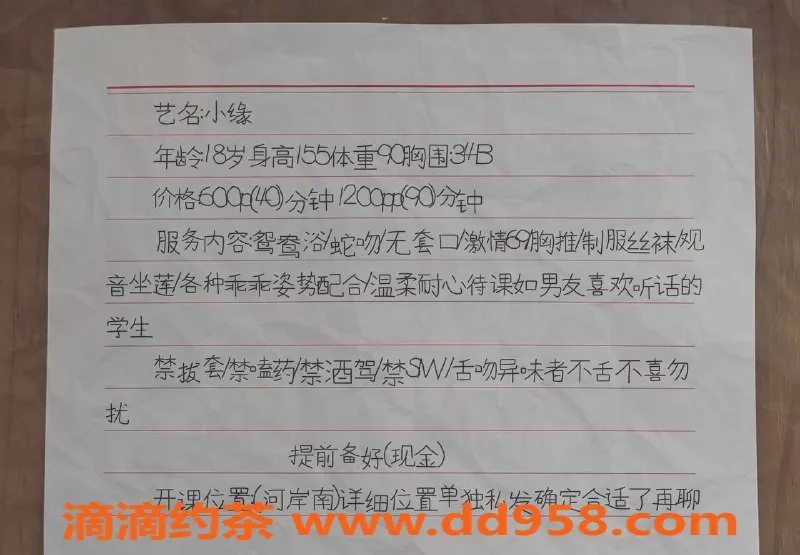 艺名:小缘
年龄18岁身高155体重90胸围:34B
价格:600p(40)分钟1200pp(90)分钟
服务内容:鸳鸯浴/蛇吻/无套口/激情69/胸推/制服丝袜/观
音坐莲/各种乖乖姿势配合/温柔耐心待课如男友喜欢听话的
学生
禁拔套/禁嗑药/禁酒驾/禁SW/舌吻异味者不舌不喜勿
扰
提前备好(现金)
开课位置:(河岸南)详细位置单独私发确定合适了再聊
滴滴约茶 www.dd958.com